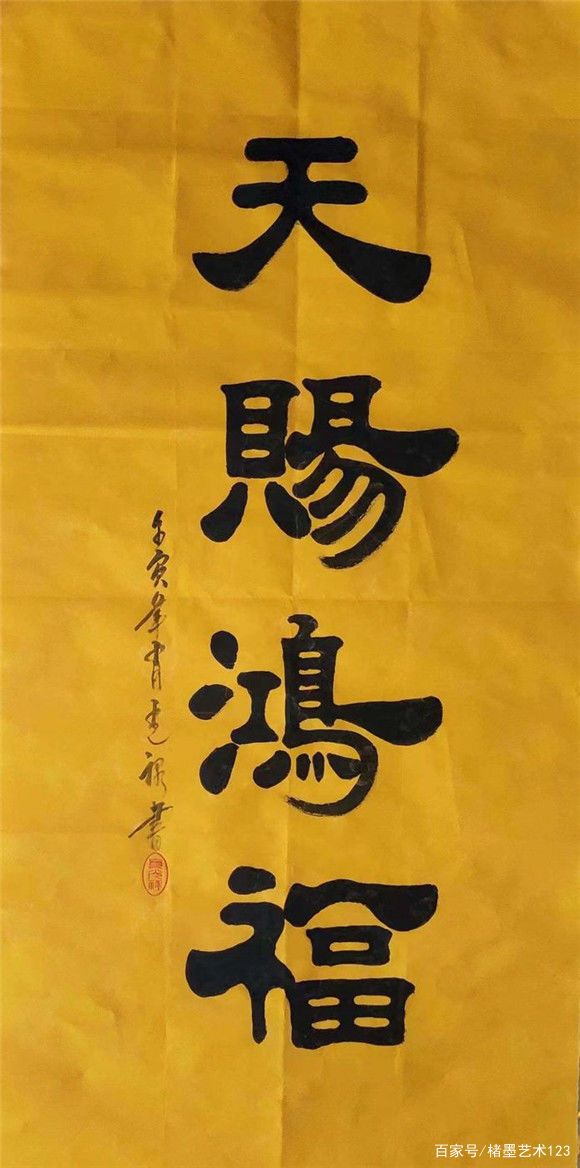 天賜鴻福
壬寅年肖書
百家号/楮墨艺术123